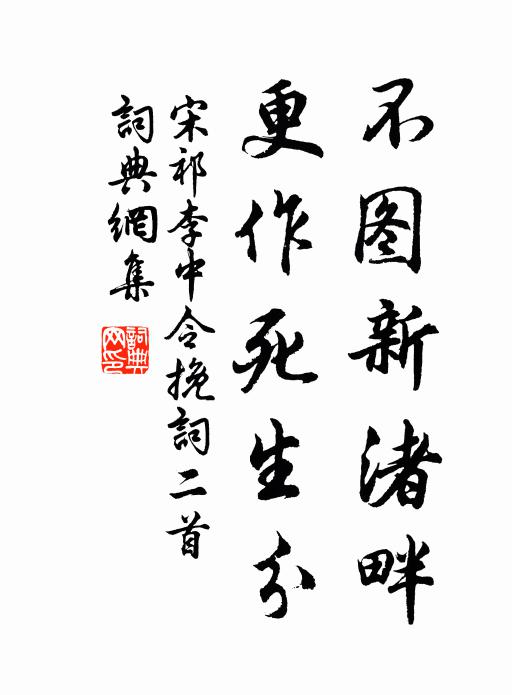 不图新渚畔
更作死生分
宋祁李中令挽詞二首
詞典網集
詞典网印